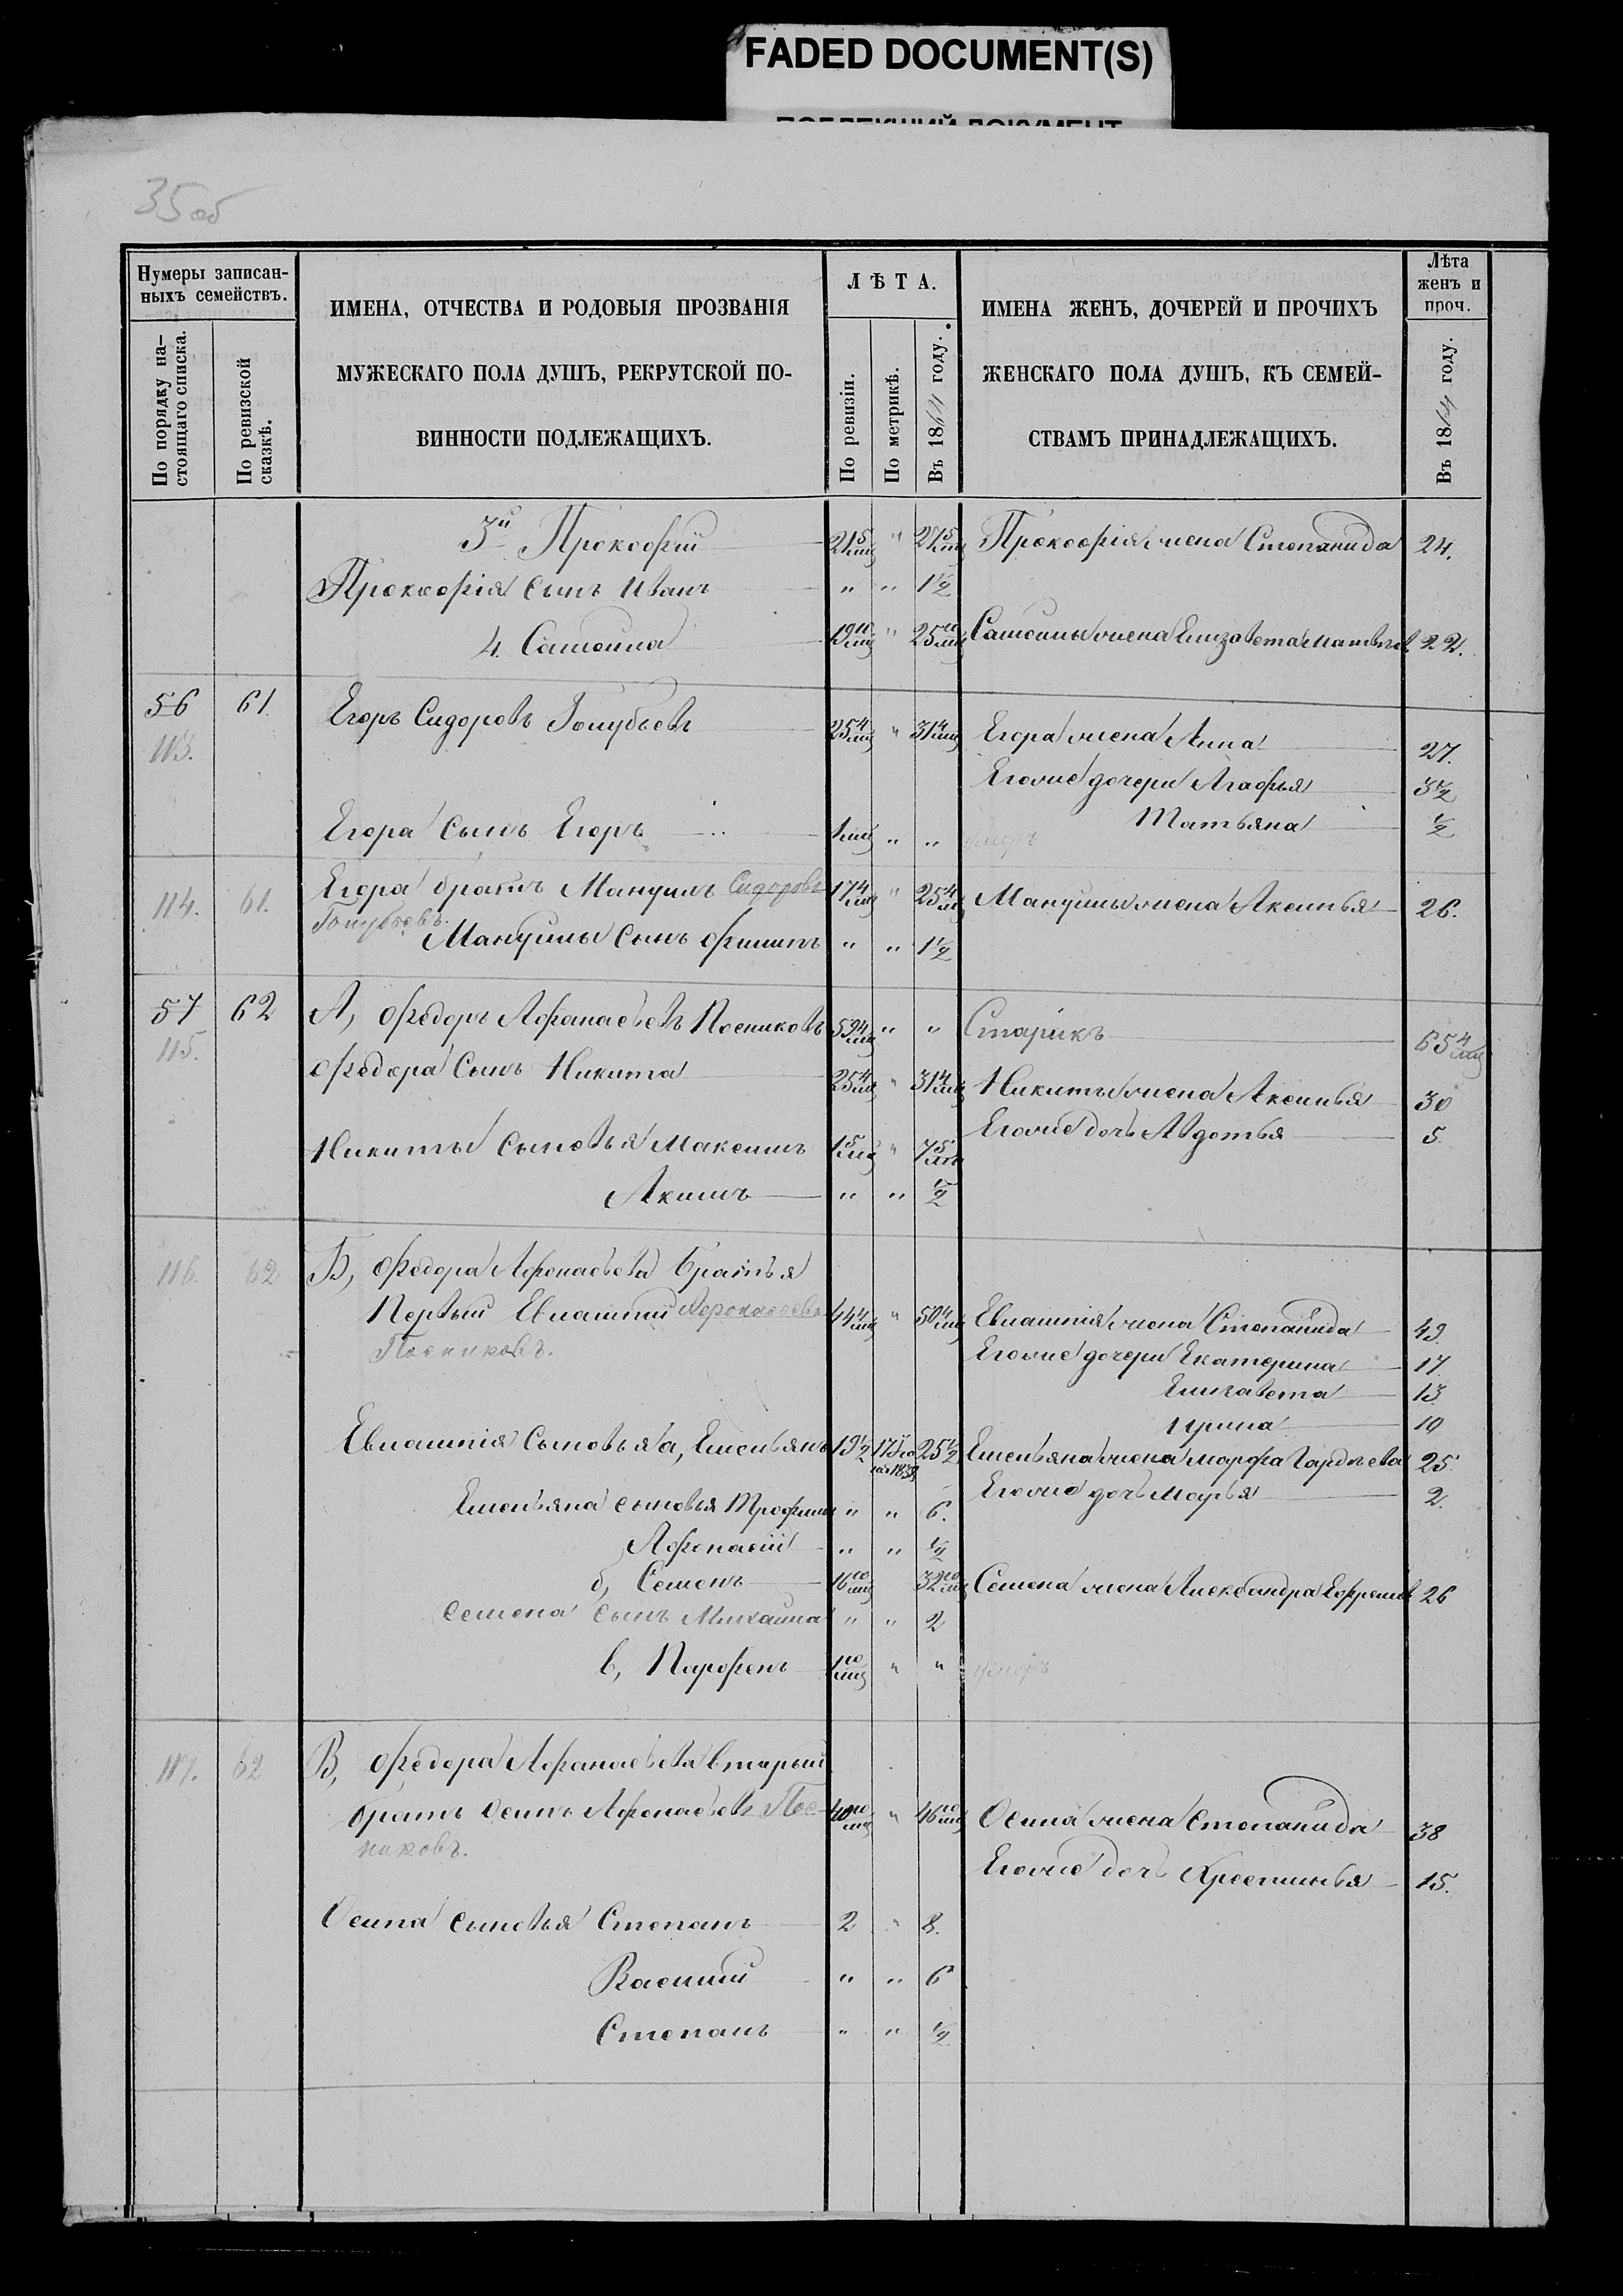 FADED DOCUMENT(S)
35 об
Нумеры записан-
ныхъ семействъ.
По порядку на-
стоящаго списка.
По ревизской
сказкѣ.
ИМЕНА, ОТЧЕСТВА И РОДОВЫЯ ПРОЗВАНІЯ
МУЖЕСКАГО ПОЛА ДУШЪ, РЕКРУТСКОЙ ПО-
ВИННОСТИ ПОДЛЕЖАЩИХЪ.
ЛѢТА.
По ревизіи.
По метрикѣ.
Въ 1864 году.
ИМЕНА ЖЕНЪ, ДОЧЕРЕЙ И ПРОЧИХЪ
ЖЕНСКАГО ПОЛА ДУШЪ, КЪ СЕМЕЙ-
СТВАМЪ ПРИНАДЛЕЖАЩИХЪ.
Лѣта
женъ и
проч.
Въ 1864 году.
3й Прокофій 21 5/мц " 27 5/мц Прокофія жена Степанида 24.
Прокофія сынъ Иванъ " " 1½
4. Самойла 19 10/мц " 25 10/мц Самойлы жена Елизавета 22.
56 61. Егоръ Сидоровъ Голубьевъ 25 4/мц " 31 4/мц Егора жена Анна 27.
113. Егоже дочери Агафья 3½
Татьяна ½
Егора сынъ Егоръ 1/мц " " умеръ
114. 61. Егора братъ Мануилъ Сидоровъ 17 4/мц " 25 4/мц Мануилы жена Аксинья 26.
Голубьевъ.
Мануилы сынъ Филипъ " " 1½
57 62 А, Федоръ Афанасьевъ Посниковъ 59 4/мц " " Старикъ 65 4/мц
115.
Федора сынъ Никита 25 4/мц " 31 4/мц Никиты жена Аксинья 30
Егоже дочь Авдотья 5.
Никиты сыновья Максимъ 1 5/мц " 7 5/мц
Акимъ " " ½
116. 62 Б, Федора Афонасьева братья
Первый Евлампій Афонасьевъ 44 4/мц " 50 4/мц Евлампія жена Степанида 49.
Посниковъ.
Егоже дочери Екатерина 17.
Елизавета 13
Ирина 10
Евлампія сыновья а, Емельянъ 19½ 25½ Емельяна жена Марфа Гордѣева 25.
Егоже дочь Марья 2.
Емельяна сыновья Трофимъ " " 6.
Афонасій " " ½
б, Семенъ 16 10/мц 32 10/мц Семена жена Александра 26
Семена сынъ Михаила " " 2
в, Парфенъ 1 10/мц " " умеръ
117. 62 В, Федора Афанасьева вторый
братъ Осипъ Афонасьевъ Пос- 40 10/мц " 46 10/мц Осипа жена Степанида 38
никовъ.
Егоже дочь Хрестинья 15.
Осипа сыновья Степанъ 2 " 8.
Василій " " 6
Степанъ " " ½